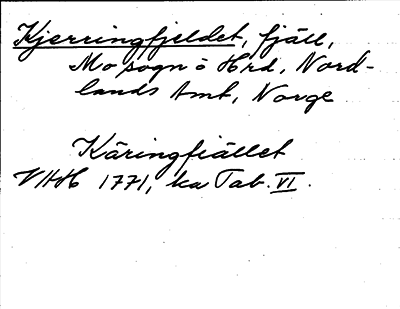 Kjerringfjeldet, fjäll,
Mo sogn o Hrd, Nord-
lands Amt, Norge
Käringfiället
VHH 1771, ka Tab. VI.